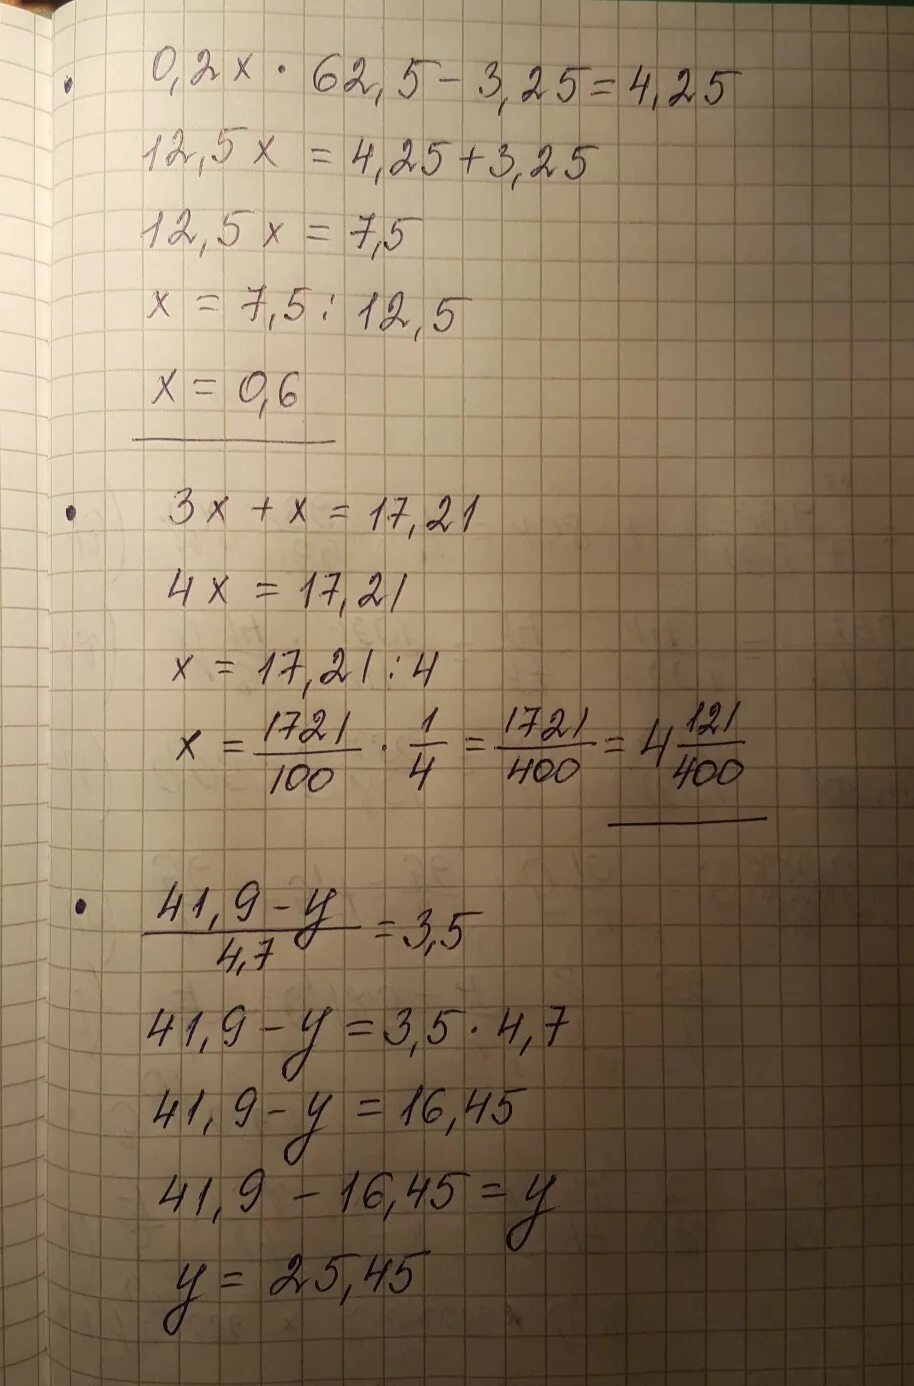 • 0,2x · 62,5 - 3,25 = 4,25
12,5x = 4,25 + 3,25
12,5x = 7,5
x = 7,5 : 12,5
x = 0,6
• 3x + x = 17,21
4x = 17,21
x = 17,21 : 4
x = 1721/100 · 1/4 = 1721/400 = 4 121/400
• (41,9 - y)/4,7 = 3,5
41,9 - y = 3,5 · 4,7
41,9 - y = 16,45
41,9 - 16,45 = y
y = 25,45